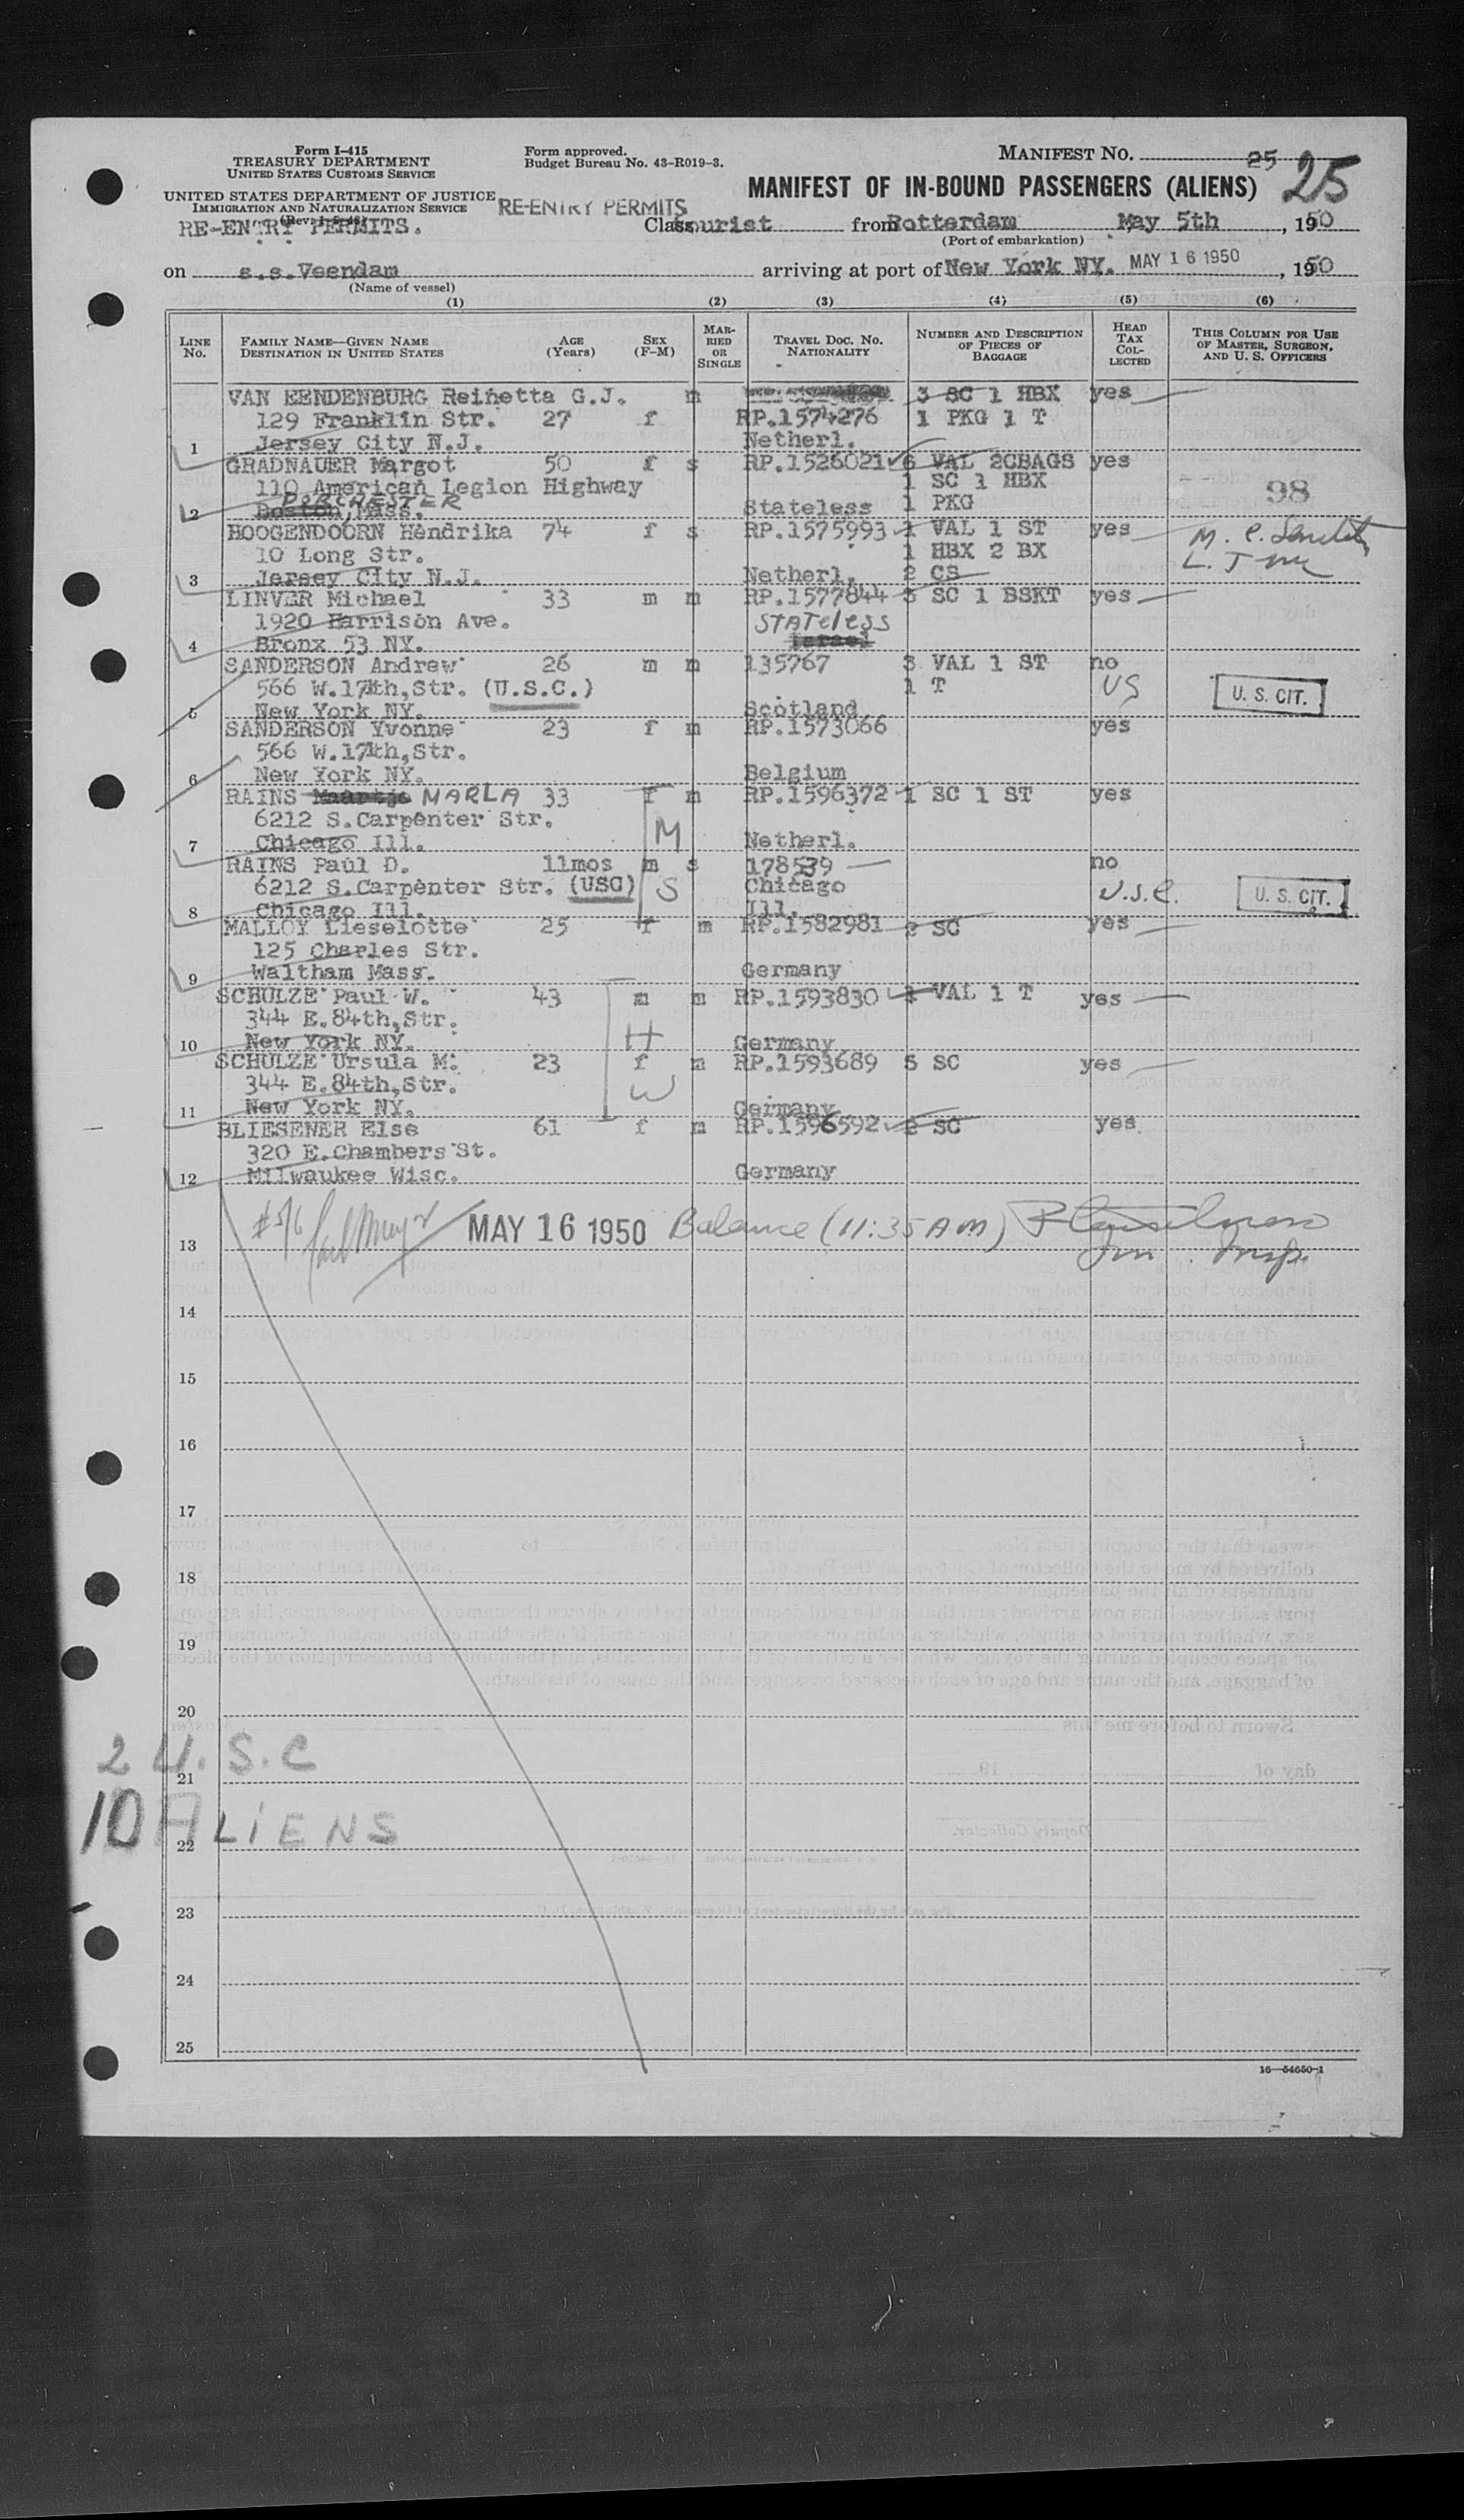 Form I-415
TREASURY DEPARTMENT
UNITED STATES CUSTOMS SERVICE
UNITED STATES DEPARTMENT OF JUSTICE
IMMIGRATION AND NATURALIZATION SERVICE
RE-ENTRY PERMITS.
Form approved.
Budget Bureau No. 43-R019-3.
RE-ENTRY PERMITS
MANIFEST NO. 25 25
MANIFEST OF IN-BOUND PASSENGERS (ALIENS)
Class tourist from Rotterdam May 5th, 1950
(Port of embarkation)
on s.s.Veendam arriving at port of New York NY. MAY 16 1950, 1950
(Name of vessel)
(1) (2) (3) (4) (5) (6)
LINE No. FAMILY NAME—GIVEN NAME DESTINATION IN UNITED STATES AGE (Years) SEX (F-M) MARRIED OR SINGLE TRAVEL DOC. NO. NATIONALITY NUMBER AND DESCRIPTION OF PIECES OF BAGGAGE HEAD TAX COLLECTED THIS COLUMN FOR USE OF MASTER, SURGEON, AND U. S. OFFICERS
VAN EENDENBURG Reinetta G.J. m 3 SC 1 HBX yes
129 Franklin Str. 27 f RP.1574276 1 PKG 1 T
1 Jersey City N.J. Netherl.
GRADNAUER Margot 50 f s RP.1526021 6 VAL 2CBAGS yes
110 American Legion Highway 1 SC 1 HBX
DORCHESTER 98
2 Boston, Mass. Stateless 1 PKG
HOOGENDOORN Hendrika 74 f s RP.1575993 1 VAL 1 ST yes
10 Long Str. 1 HBX 2 BX
3 Jersey City N.J. Netherl. 2 CS
LINVER Michael 33 m m RP.1577844 3 SC 1 BSKT yes
1920 Harrison Ave. STATELESS
4 Bronx 53 NY. Israel
SANDERSON Andrew 26 m m 135767 3 VAL 1 ST no
566 W.174th,Str. (U.S.C.) 1 T US U. S. CIT.
5 New York NY. Scotland
SANDERSON Yvonne 23 f m RP.1573066 yes
566 W.174th,Str.
6 New York NY. Belgium
RAINS Maartje MARLA 33 f m RP.1596372 1 SC 1 ST yes
6212 S.Carpenter Str. M
7 Chicago Ill. Netherl.
RAINS Paul D. 11mos m s 178539 no
6212 S.Carpenter Str. (USC) S Chicago U.S.C. U. S. CIT.
8 Chicago Ill. Ill.
MALLOY Lieselotte 25 f m RP.1582981 2 SC yes
125 Charles Str.
9 Waltham Mass. Germany
SCHULZE Paul W. 43 m m RP.1593830 1 VAL 1 T yes
344 E.84th,Str.
10 New York NY. H Germany
SCHULZE Ursula M. 23 f m RP.1593689 5 SC yes
344 E.84th,Str. W
11 New York NY. Germany
BLIESENER Else 61 f m RP.1596592 2 SC yes
320 E.Chambers St.
12 Milwaukee Wisc. Germany
MAY 16 1950 Balance (11:35 AM)
13 Imm. Insp.
14
15
16
17
18
19
20
2 U.S.C
21
10 ALIENS
22
23
24
25
16—54650-1